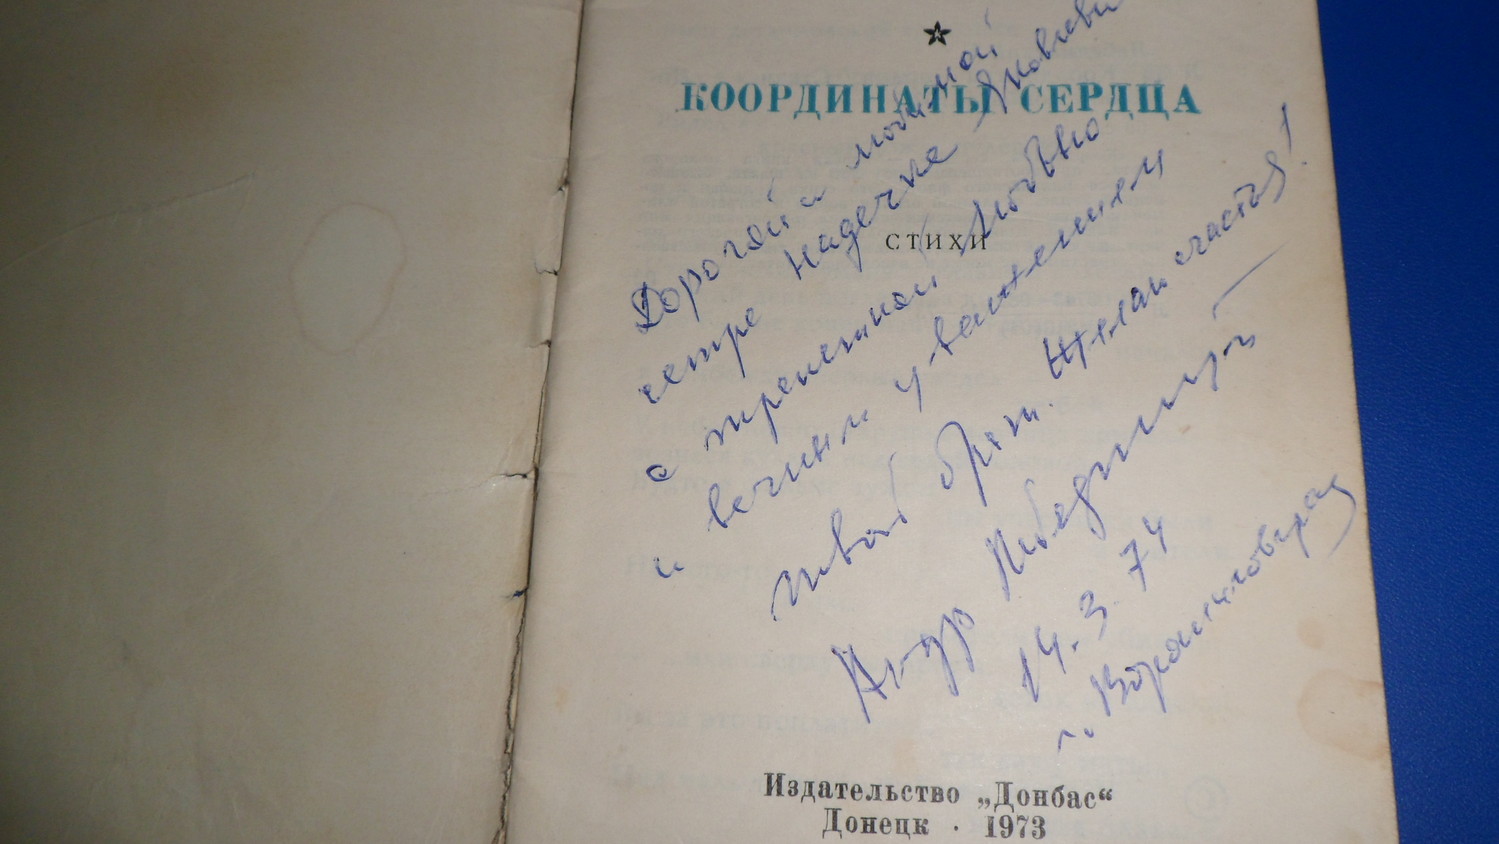 КООРДИНАТЫ СЕРДЦА
СТИХИ
Дорогой и любимой
сестре Надечке Яковлевне
с трепетной любовью
и вечным уважением
твой брат. Желаю счастья!
14.3.74
г. Ворошиловград
Издательство „Донбас“
Донецк · 1973